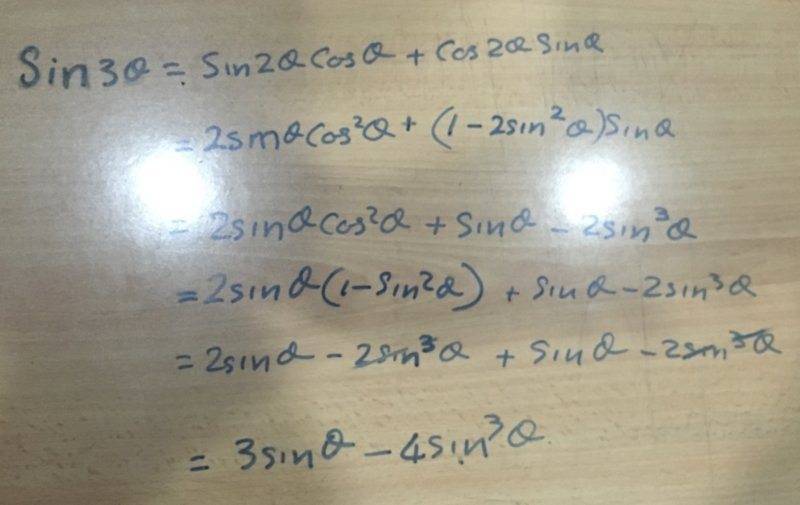 Sin3θ = Sin2θ Cosθ + Cos2θ Sinθ
= 2sinθ Cos²θ + (1 - 2sin²θ)Sinθ
= 2sinθ Cos²θ + Sinθ - 2sin³θ
= 2sinθ(1 - Sin²θ) + Sinθ - 2sin³θ
= 2sinθ - 2sin³θ + Sinθ - 2sin³θ
= 3sinθ - 4sin³θ